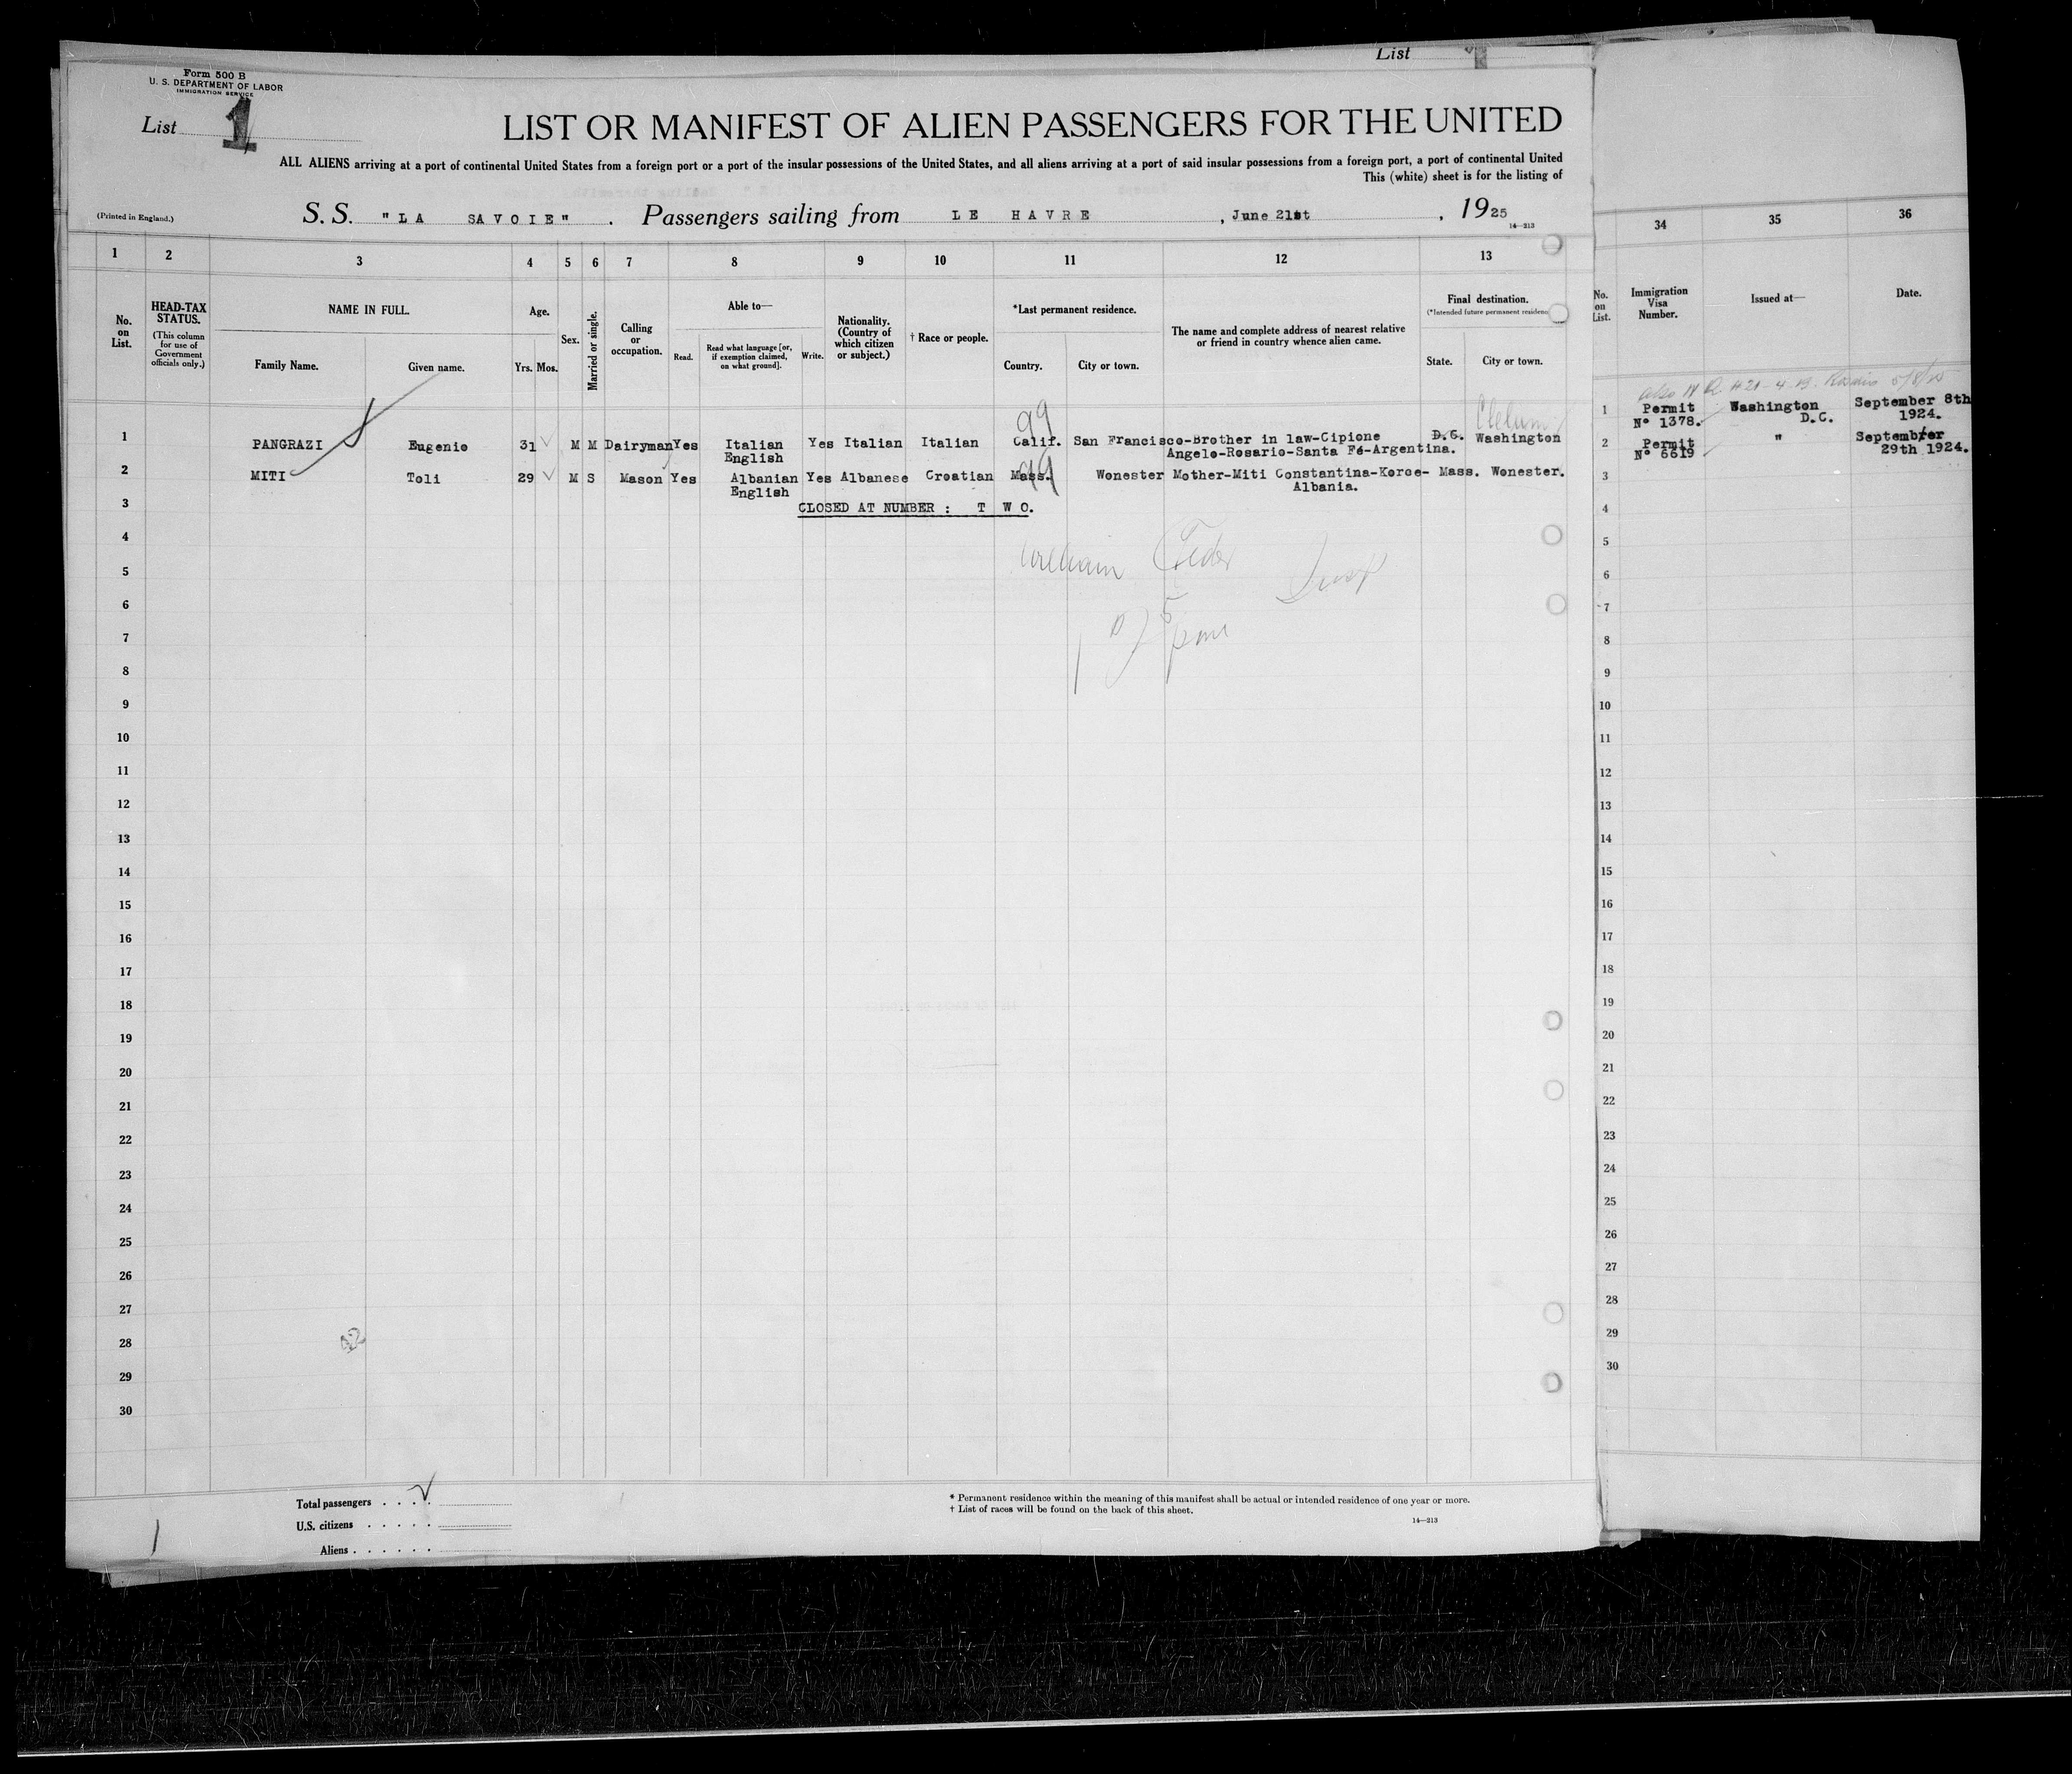 List
Form 500 B
U. S. DEPARTMENT OF LABOR
IMMIGRATION SERVICE
List 1
LIST OR MANIFEST OF ALIEN PASSENGERS FOR THE UNITED
ALL ALIENS arriving at a port of continental United States from a foreign port or a port of the insular possessions of the United States, and all aliens arriving at a port of said insular possessions from a foreign port, a port of continental United
This (white) sheet is for the listing of
(Printed in England.)
S. S. "LA SAVOIE" . Passengers sailing from LE HAVRE , June 21st , 1925
14—213
1 2 3 4 5 6 7 8 9 10 11 12 13 34 35 36
No. on List.
HEAD-TAX STATUS.
(This column for use of Government officials only.)
NAME IN FULL.
Family Name. Given name.
Age.
Yrs. Mos.
Sex.
Married or single.
Calling or occupation.
Able to—
Read. Read what language [or, if exemption claimed, on what ground]. Write.
Nationality. (Country of which citizen or subject.)
† Race or people.
*Last permanent residence.
Country. City or town.
The name and complete address of nearest relative or friend in country whence alien came.
Final destination.
(*Intended future permanent residence
State. City or town.
No. on List.
Immigration Visa Number.
Issued at—
Date.
99
1 PANGRAZI Eugenio 31 M M Dairyman Yes Italian Yes Italian Italian Calif. San Francisco-Brother in law-Cipione D.C. Washington
English Angelo-Rosario-Santa Fé-Argentina.
99
2 MITI Toli 29 M S Mason Yes Albanian Yes Albanese Croatian Mass. Wonester Mother-Miti Constantina-Korce- Mass. Wonester.
English Albania.
3 CLOSED AT NUMBER : T W O.
4
5
6
7
8
9
10
11
12
13
14
15
16
17
18
19
20
21
22
23
24
25
26
27
28
29
30
1 Permit Washington September 8th
Nº 1378. D.C. 1924.
2 Permit " September
Nº 6619 29th 1924.
3
4
5
6
7
8
9
10
11
12
13
14
15
16
17
18
19
20
21
22
23
24
25
26
27
28
29
30
Total passengers . . . .
U.S. citizens . . . . .
Aliens . . . . . .
1
* Permanent residence within the meaning of this manifest shall be actual or intended residence of one year or more.
† List of races will be found on the back of this sheet.
14—213